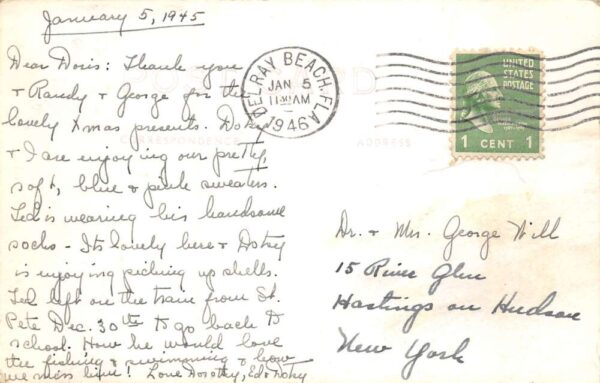 January 5, 1945
Dear Doris: Thank you
& Randy & George for the
lovely Xmas presents. Dotsy
& I are enjoying our pretty,
soft, blue & pink sweaters.
Ted is wearing his handsome
socks - Its lovely here & Dotsy
is enjoying picking up shells.
Ted left on the train from St.
Pete Dec. 30th to go back to
school. How he would love
the fishing & swimming & how
we miss him! Love Dorothy, Ed & Dotsy
POST CARD
CORRESPONDENCE
ADDRESS
DELRAY BEACH, FLA
JAN 5
11:30 AM
1946
UNITED
STATES
POSTAGE
1 CENT 1
Dr. & Mrs. George Will
15 River Glen
Hastings on Hudson
New York